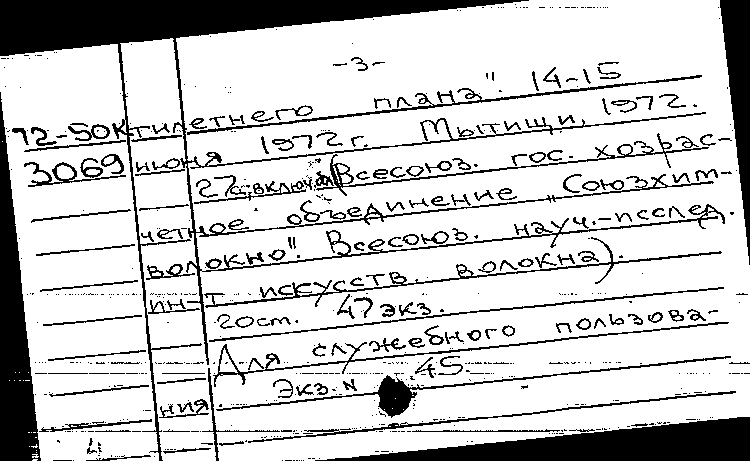 -3-
72-50К тилетнего плана". 14-15
3069 июня 1972 г. Мытищи, 1972.
27 с., включ. обл. (Всесоюз. гос. хозрас-
четное объединение „Союзхим-
волокно". Всесоюз. науч.-исслед.
ин-т искусств. волокна).
20 ст. 47 экз.
Для служебного пользова-
ния. Экз. N 45.
4